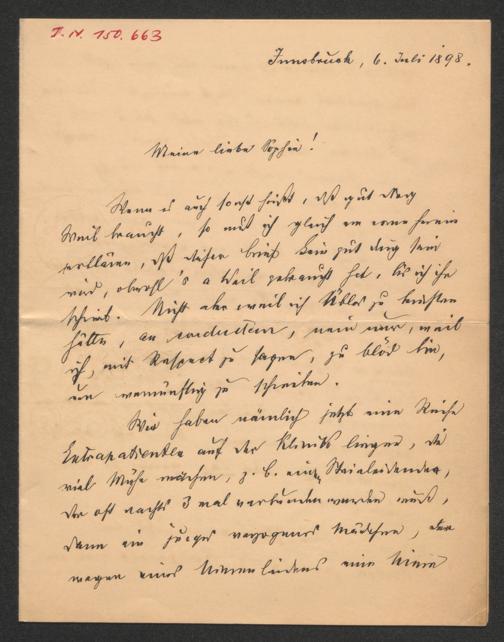 I. N. 150.663
Innsbruck, 6. Juli 1898.
Meine liebe Sophie!
Wenn es auch sonst heißt, daß gut Ding
Weil braucht, so muß ich gleich von vorne herein
erklären, daß dieser Brief kein gut Ding sein
wird, obwohl's a Weil gebraucht hat, bis ich ihn
schrieb. Nicht aber weil ich Übles zu berichten
hätte, au contraire, nein nur, weil
ich, mit Respect zu sagen, zu blöd bin,
um vernünftig zu schreiben.
Wir haben nämlich jetzt eine Reihe
Extrapatienten auf der Klinik liegen, die
viel Mühe machen, z. B. einen Steinleidenden,
der oft nachts 3 mal verbunden werden muß,
dann ein junges verzogenes Mädchen, der
wegen eines Nierenleidens eine Niere